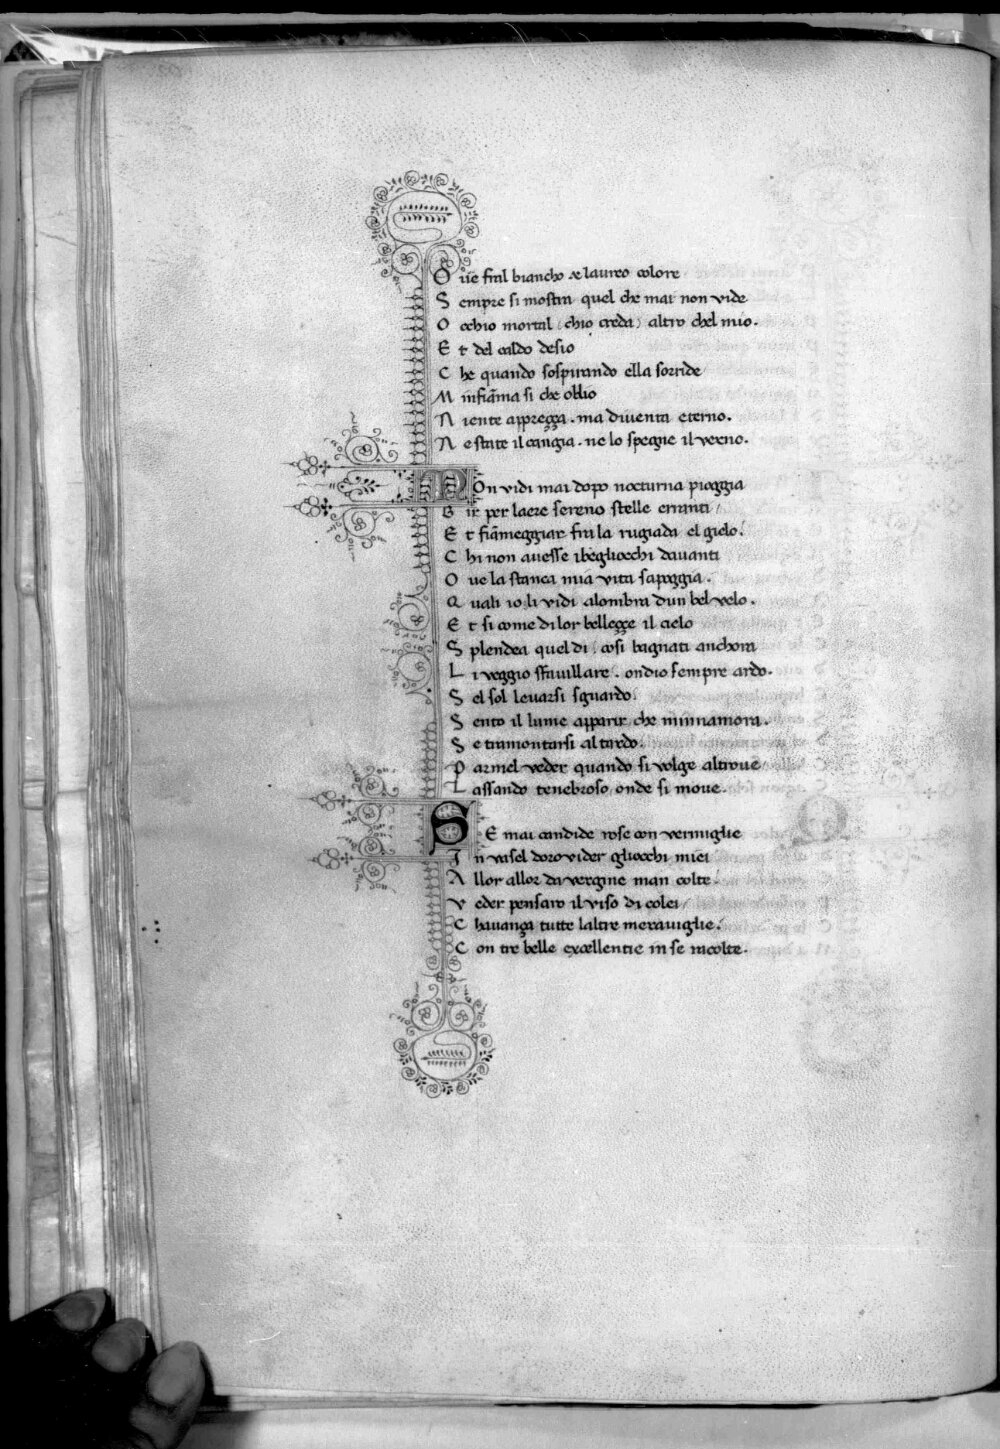 O ue fral biancho & laureo colore
S empre si mostra quel che mai non vide
O cchio mortal (chio creda) altro chel mio.
E t del caldo desio
C he quando sospirando ella sorride
M infiãma si che oblio
N iente apprezza. ma diuenta eterno.
N e state il cangia. ne lo spegne il verno.
N On vidi mai dopo nocturna pioggia
G ir per laere sereno stelle erranti/
E t fiãmeggiar fra la rugiada el gielo:
C hi non auesse i begliocchi dauanti
O ue la stanca mia vita sapoggia.
Q uali io li vidi alombra dun bel velo.
E t si come di lor bellezze il cielo
S plendea quel di: cosi bagnati anchora
L i veggio sfauillare. ondio sempre ardo.
S el sol leuarsi sguardo:
S ento il lume apparir che minnamora.
S e tramontarsi al tardo:
P armel veder quando si volge altroue
L assando tenebroso onde si moue.
S E mai candide rose con vermiglie
I n vasel doro vider gliocchi miei
A llor allor da vergine man colte:
V eder pensaro il viso di colei/
C hauanza tutte laltre merauiglie:
C on tre belle excellentie in se racolte.